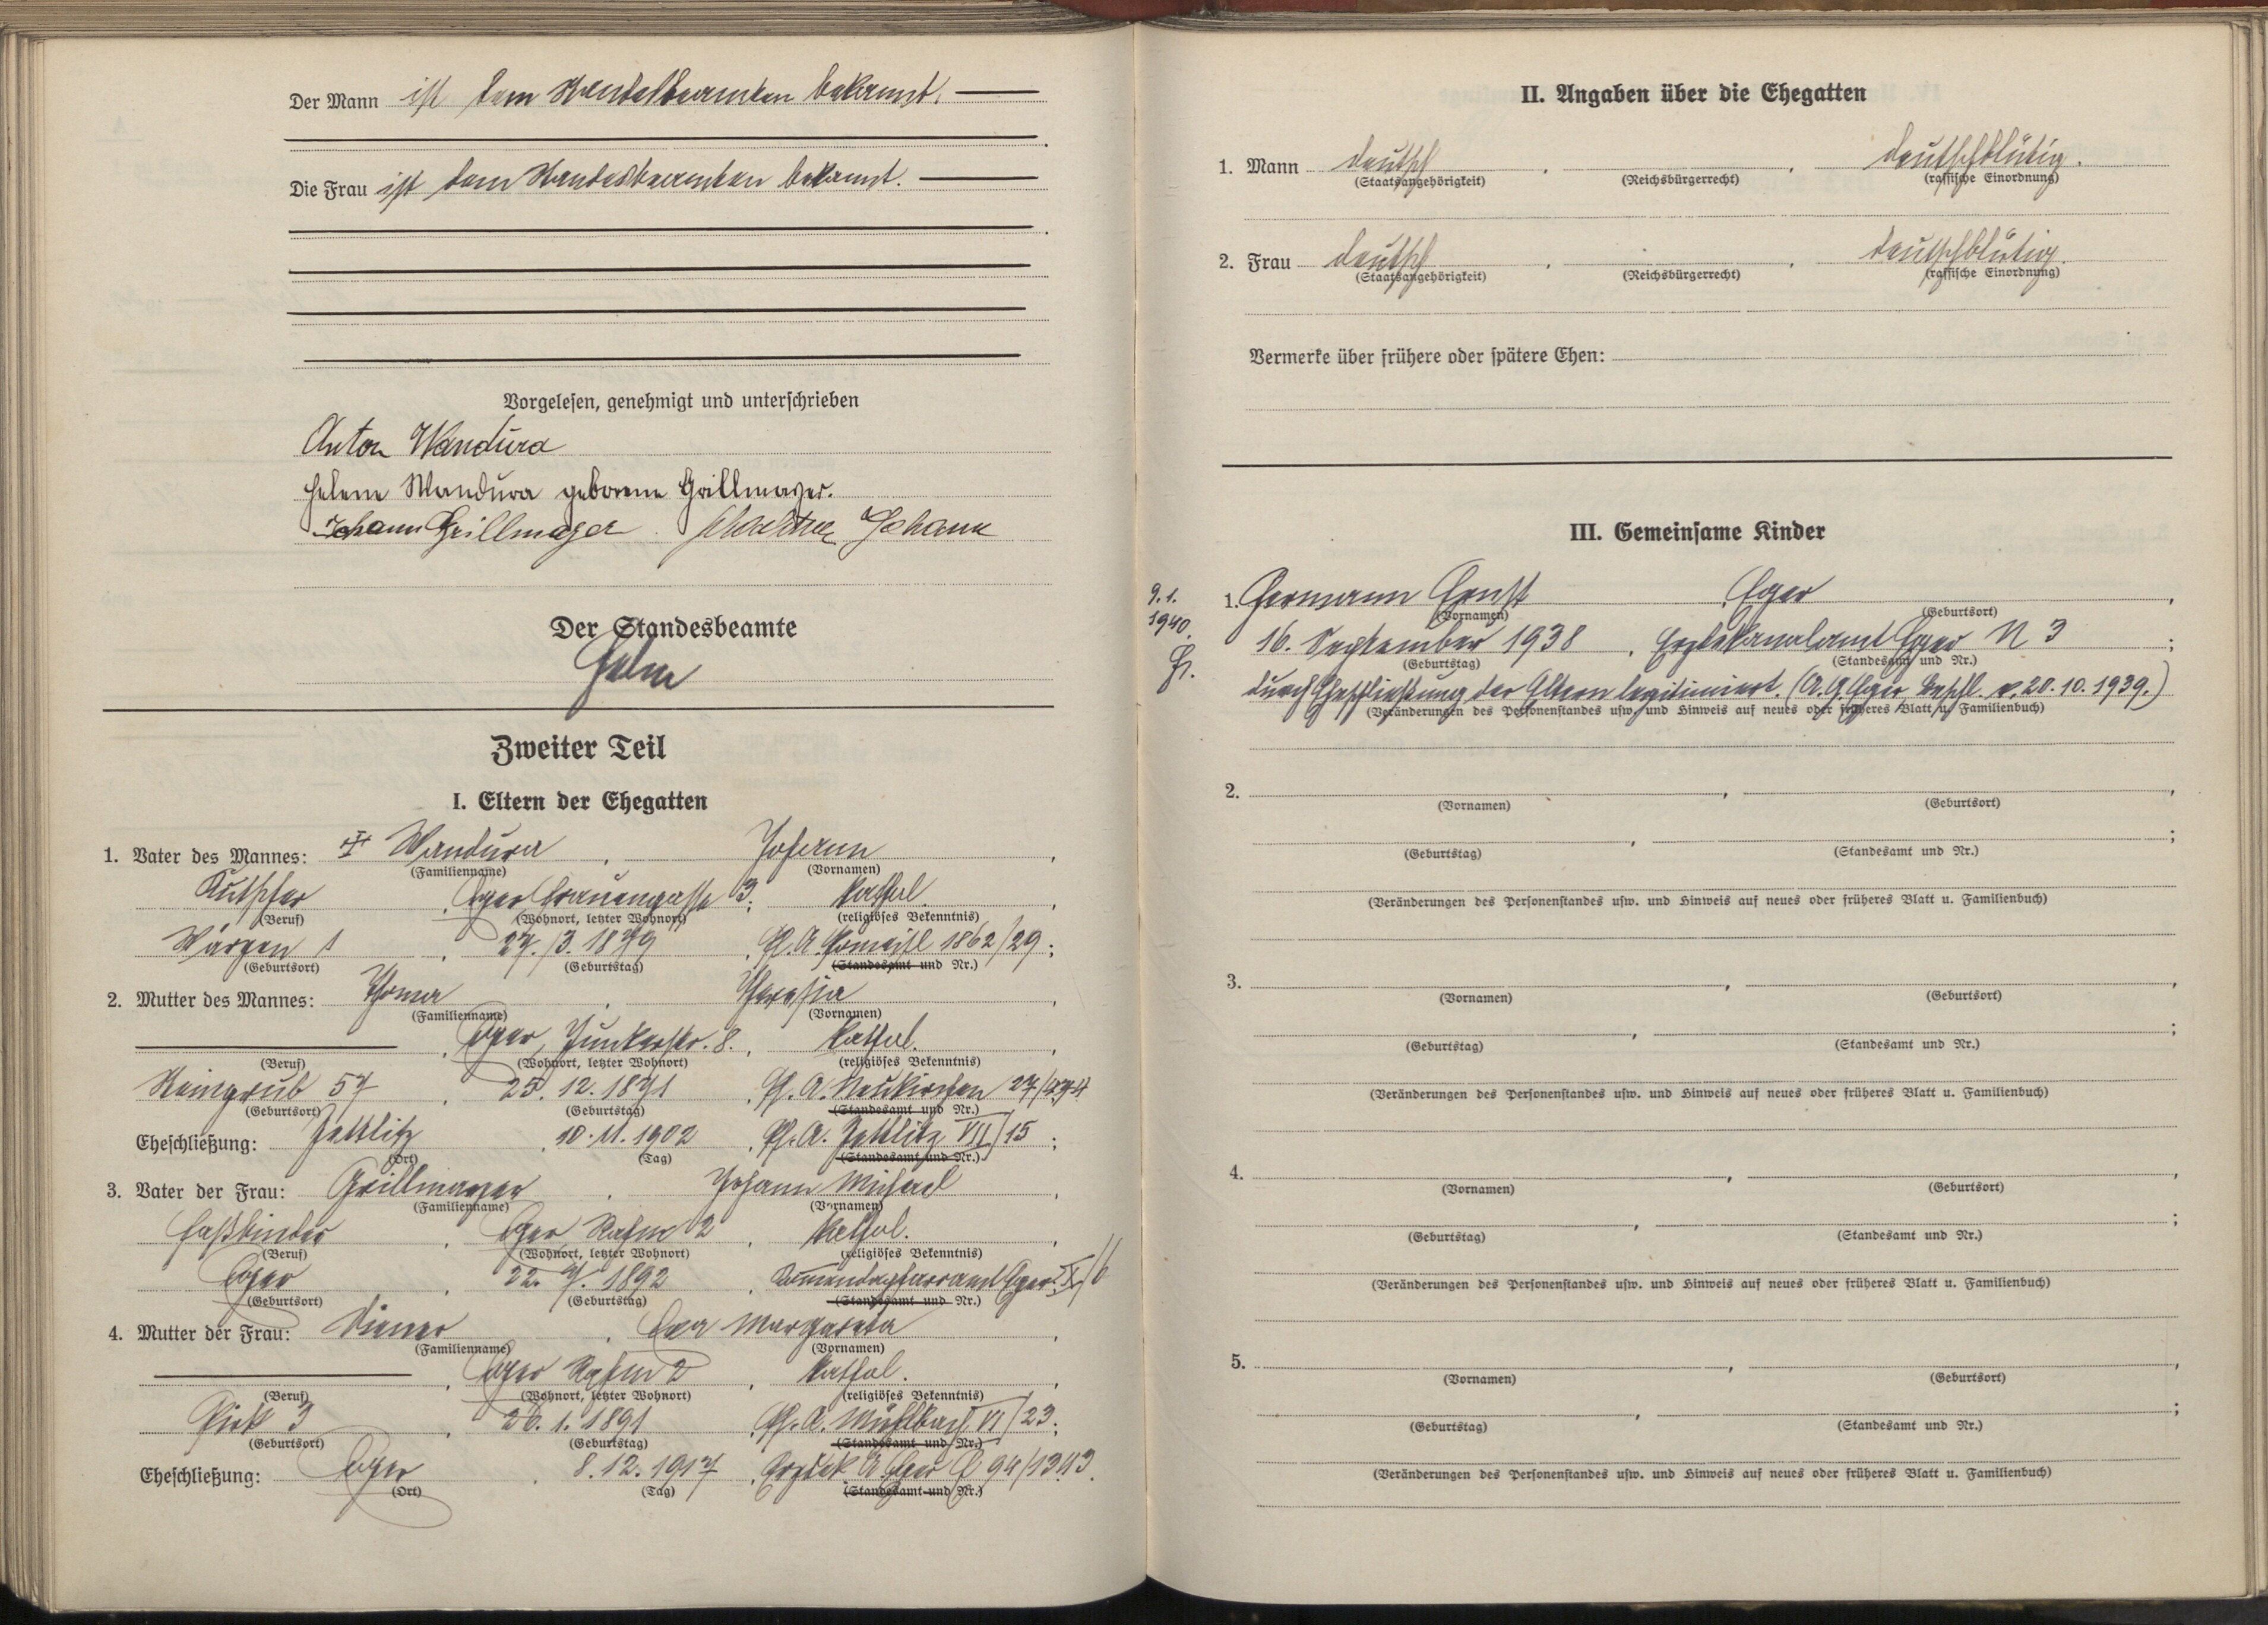 Der Mann ist dem Standesbeamten bekannt.
Die Frau ist dem Standesbeamten bekannt.
Vorgelesen, genehmigt und unterschrieben
Anton Wandura
Helene Wandura geborene Grillmayer.
Johann Grillmayer Johann
Der Standesbeamte
Helm
Zweiter Teil
I. Eltern der Ehegatten
1. Vater des Mannes: Wandura, Johann,
(Familienname) (Vornamen)
Kutscher, Eger 3; kathol.,
(Beruf) (Wohnort, letzter Wohnort) (religiöses Bekenntnis)
1, 27./3. 1879, Pf. A. 1862/29;
(Geburtsort) (Geburtstag) (Standesamt und Nr.)
2. Mutter des Mannes: Thoma, Theresia,
(Familienname) (Vornamen)
, Eger, Junkerstr. 8., kathol.,
(Beruf) (Wohnort, letzter Wohnort) (religiöses Bekenntnis)
Steingrub 57, 25. 12. 1871, Pf. A. Neukirchen 27/274
(Geburtsort) (Geburtstag) (Standesamt und Nr.)
Eheschließung: Zettlitz, 10. 11. 1902, Pf. A. Zettlitz VII/15;
(Ort) (Tag) (Standesamt und Nr.)
3. Vater der Frau: Grillmayer, Johann Michael,
(Familienname) (Vornamen)
Faßbinder, Eger 2, kathol.,
(Beruf) (Wohnort, letzter Wohnort) (religiöses Bekenntnis)
Eger, 22. 7. 1892, Eger
(Geburtsort) (Geburtstag) (Standesamt und Nr.)
4. Mutter der Frau: Eva Margareta,
(Familienname) (Vornamen)
, Eger 2, kathol.,
(Beruf) (Wohnort, letzter Wohnort) (religiöses Bekenntnis)
3, 26. 1. 1891, Pf. A. Mühlbach VI/23;
(Geburtsort) (Geburtstag) (Standesamt und Nr.)
Eheschließung: Eger, 8. 12. 1917, Erzdek. A. Eger 94/1343.
(Ort) (Tag) (Standesamt und Nr.)
II. Angaben über die Ehegatten
1. Mann deutsch, , deutschblütig.
(Staatsangehörigkeit) (Reichsbürgerrecht) (rassische Einordnung)
2. Frau deutsch, , deutschblütig.
(Staatsangehörigkeit) (Reichsbürgerrecht) (rassische Einordnung)
Vermerke über frühere oder spätere Ehen:
III. Gemeinsame Kinder
9. 1.
1940.
1. Hermann Ernst, Eger,
(Vornamen) (Geburtsort)
16. September 1938, Erzdekanalamt Eger N 3;
(Geburtstag) (Standesamt und Nr.)
durch Eheschließung der Eltern legitimiert. (A. G. Eger Beschl. v. 20. 10. 1939.)
(Veränderungen des Personenstandes usw. und Hinweis auf neues oder früheres Blatt u. Familienbuch)
2. , ,
(Vornamen) (Geburtsort)
, ;
(Geburtstag) (Standesamt und Nr.)
(Veränderungen des Personenstandes usw. und Hinweis auf neues oder früheres Blatt u. Familienbuch)
3. , ,
(Vornamen) (Geburtsort)
, ;
(Geburtstag) (Standesamt und Nr.)
(Veränderungen des Personenstandes usw. und Hinweis auf neues oder früheres Blatt u. Familienbuch)
4. , ,
(Vornamen) (Geburtsort)
, ;
(Geburtstag) (Standesamt und Nr.)
(Veränderungen des Personenstandes usw. und Hinweis auf neues oder früheres Blatt u. Familienbuch)
5. , ,
(Vornamen) (Geburtsort)
, ;
(Geburtstag) (Standesamt und Nr.)
(Veränderungen des Personenstandes usw. und Hinweis auf neues oder früheres Blatt u. Familienbuch)